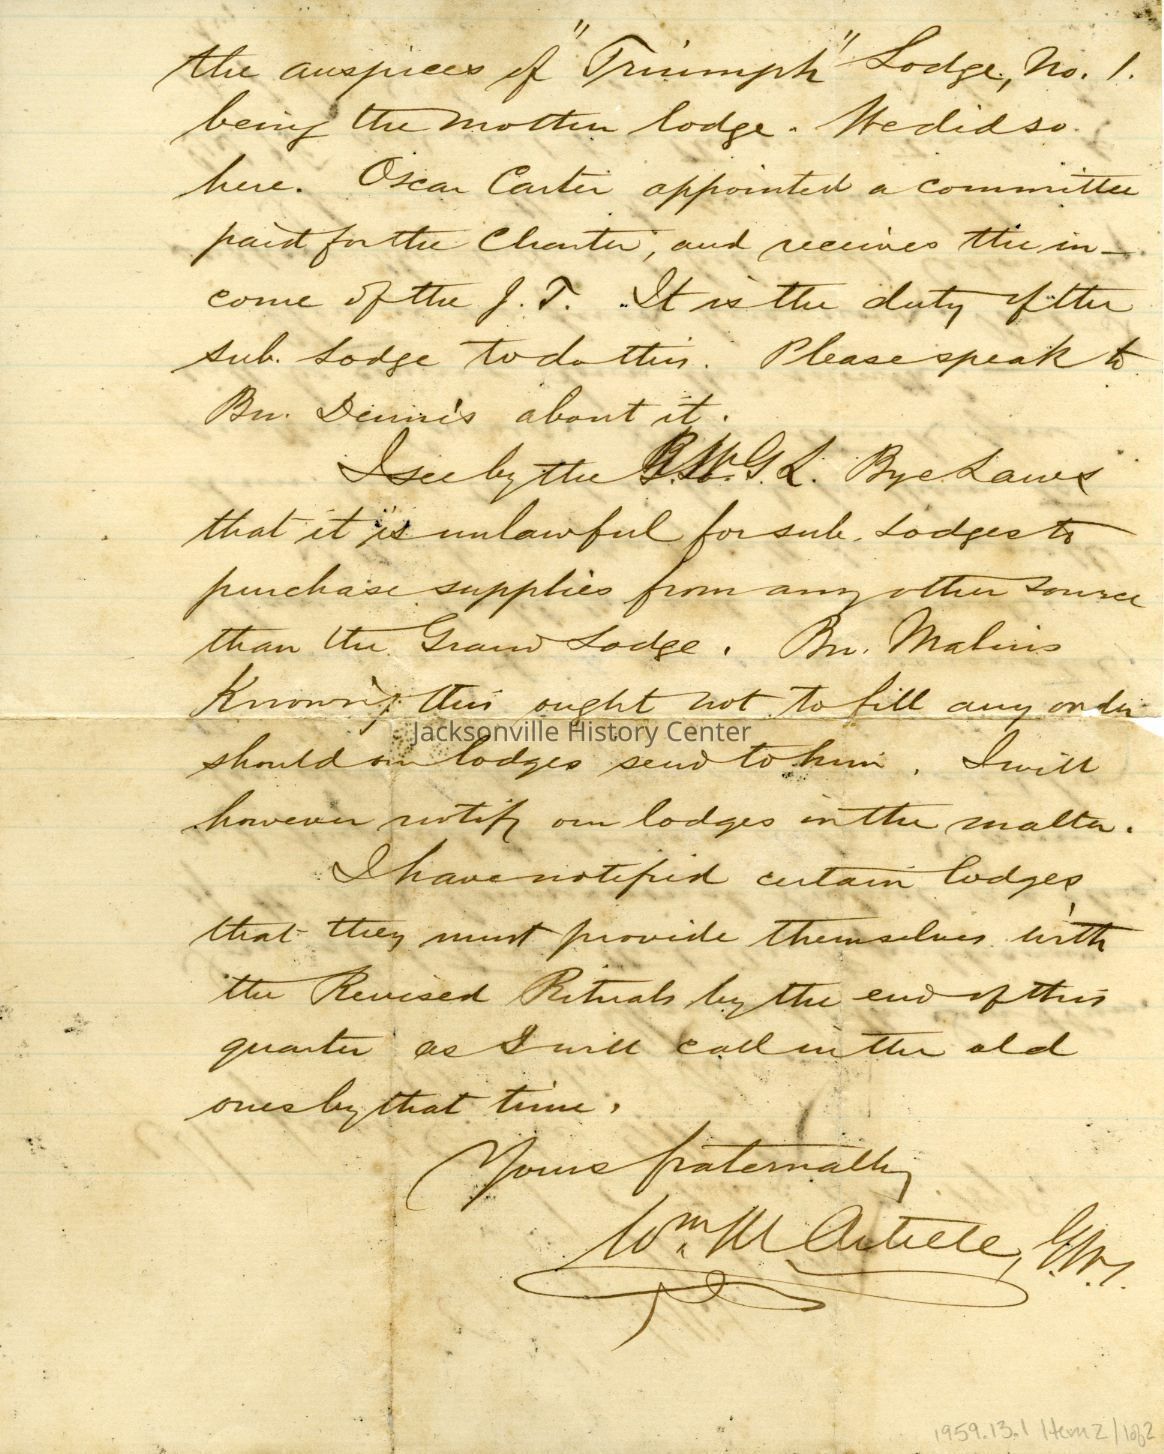 the auspices of "Triumph" Lodge, No. 1.
being the mother lodge. We did so
here. Oscar Carter appointed a committee
paid for the Charter, and receives the in-
come of the J. T. It is the duty of the
sub. Lodge to do this. Please speak to
Bro. Dennis about it.
I see by the R.W.G.L. Bye Laws
that it is unlawful for sub. Lodges to
purchase supplies from any other source
than the Grand Lodge. Bro. Malins
Knowing this ought not to fill any order
Jacksonville History Center
should our lodges send to him. I will
however notify our lodges in the matter.
I have notified certain lodges
that they must provide themselves with
the Revised Rituals by the end of this
quarter as I will call in the old
ones by that time.
Yours fraternally
Wm M Artrell, G.W.
1959.13.1 Item 2/1of2